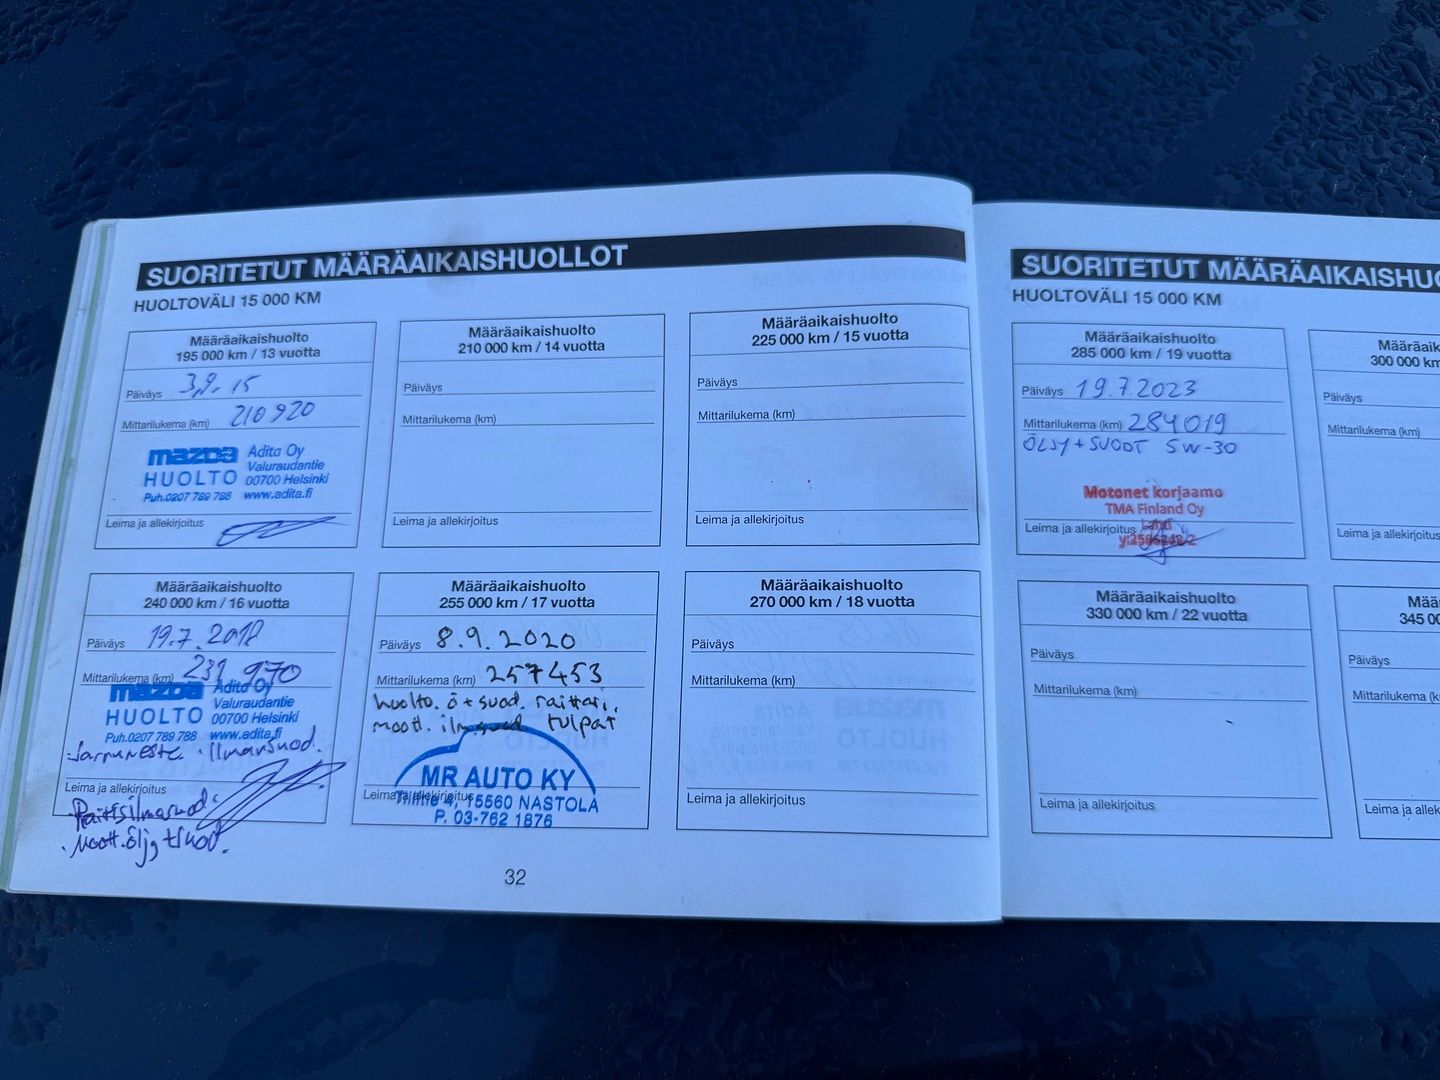 SUORITETUT MÄÄRÄAIKAISHUOLLOT
HUOLTOVÄLI 15 000 KM
Määräaikaishuolto
195 000 km / 13 vuotta
Päiväys 3.9.15
Mittarilukema (km) 210920
mazda Adita Oy
HUOLTO Valuraudantie
00700 Helsinki
Puh.0207 789 788 www.adita.fi
Leima ja allekirjoitus
Määräaikaishuolto
210 000 km / 14 vuotta
Päiväys
Mittarilukema (km)
Leima ja allekirjoitus
Määräaikaishuolto
225 000 km / 15 vuotta
Päiväys
Mittarilukema (km)
Leima ja allekirjoitus
Määräaikaishuolto
240 000 km / 16 vuotta
Päiväys 19.7.2018
Mittarilukema (km) 231 970
mazda Adita Oy
HUOLTO Valuraudantie
00700 Helsinki
Puh.0207 789 788 www.adita.fi
·Jarruneste ·Ilmansuod.
Leima ja allekirjoitus
·Raitisilmasuod.
·Moott.öljy +suod.
Määräaikaishuolto
255 000 km / 17 vuotta
Päiväys 8.9.2020
Mittarilukema (km) 257453
huolto. ö+suod. raitari.
moott. ilmsuod tulpat
MR AUTO KY
Leima ja allekirjoitus
4, 15560 NASTOLA
P. 03-762 1876
Määräaikaishuolto
270 000 km / 18 vuotta
Päiväys
Mittarilukema (km)
Leima ja allekirjoitus
32
SUORITETUT MÄÄRÄAIKAISHUO
HUOLTOVÄLI 15 000 KM
Määräaikaishuolto
285 000 km / 19 vuotta
Päiväys 19.7.2023
Mittarilukema (km) 284019
ÖLJY+SUODT 5W-30
Motonet korjaamo
TMA Finland Oy
Leima ja allekirjoitus Lahti
Määräaik
300 000 km
Päiväys
Mittarilukema (km)
Leima ja allekirjoitus
Määräaikaishuolto
330 000 km / 22 vuotta
Päiväys
Mittarilukema (km)
Leima ja allekirjoitus
Mää
345 00
Päiväys
Mittarilukema (km)
Leima ja allek